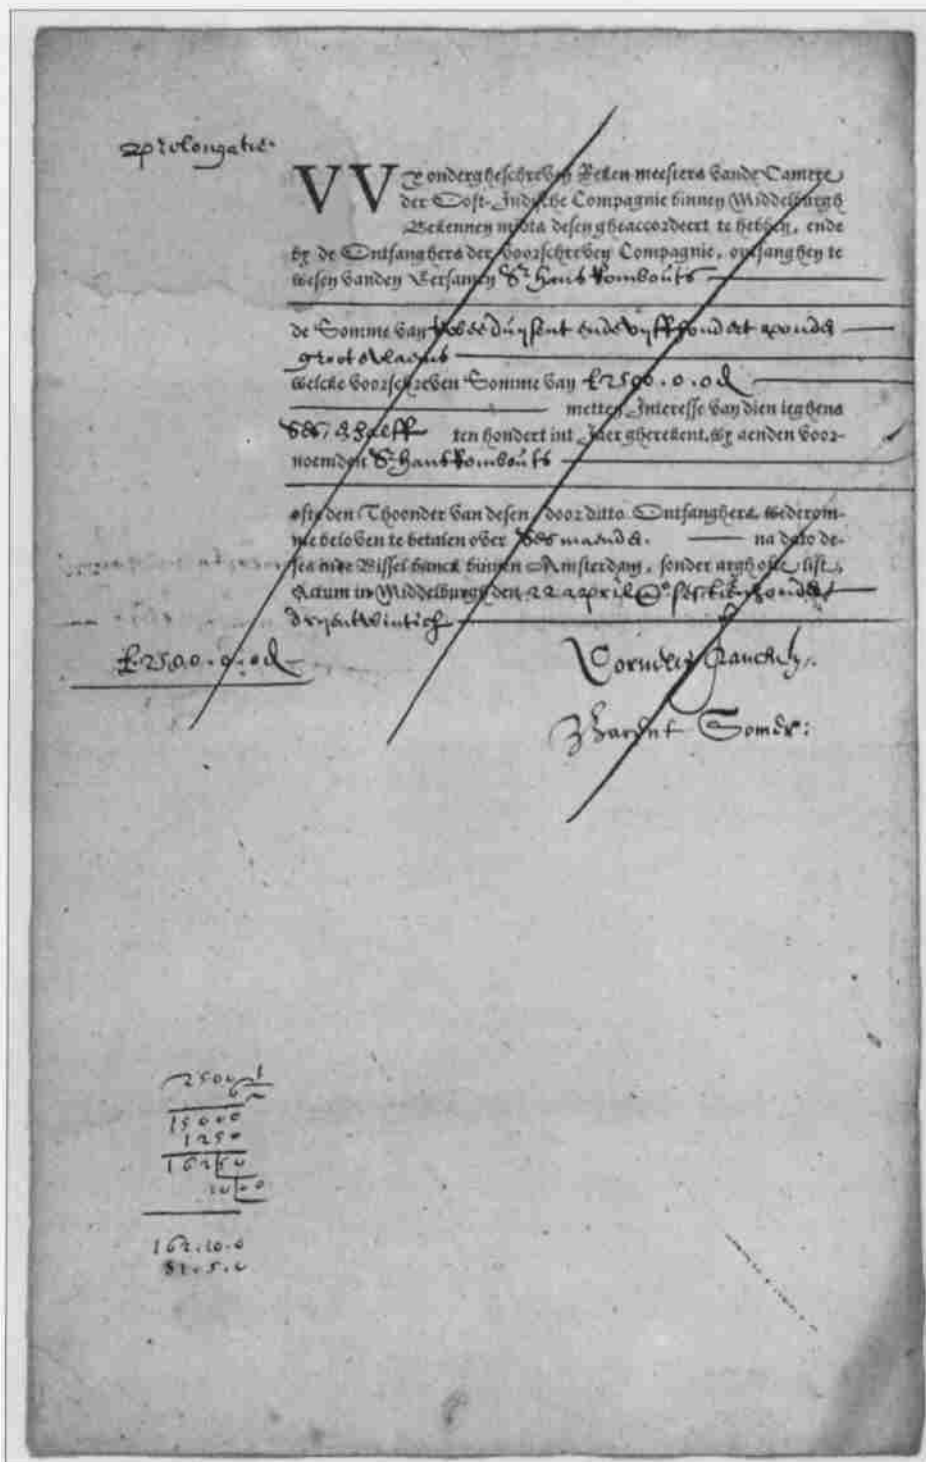 prolongatie
VVy ondergheschreven Reken-meesters vande Camere
der Oost-Indische Compagnie binnen Middelburgh
Bekennen midts desen gheaccordeert te hebben, ende
by de Ontfanghers der voorschreven Compagnie, ontfanghen te
wesen vanden Eersamen Sr. hans Rombouts
de Somme van twee duijsent ende vijff hondert ponde
groot vlaems
welcke voorschreven Somme van £ 2500.0.0 d
metten Interesse van dien teghens
ses, & halff ten hondert int Jaer gherekent, wy aenden voor-
noemden Sr. hans Rombouts
ofte den Thoonder van desen, door ditto Ontfanghers wederom-
me beloven te betalen over ses maenden. na dato de-
ses inde Wissel-banck binnen Amsterdam, sonder argh ofte list,
Actum in Middelburgh den 22 april Ao. sesthien hondert
drijentwintich
£ 2500.0.0 d
Barent Somer:
2500
6
15000
1250
162|50
10|00
162.10.0
81.5.0